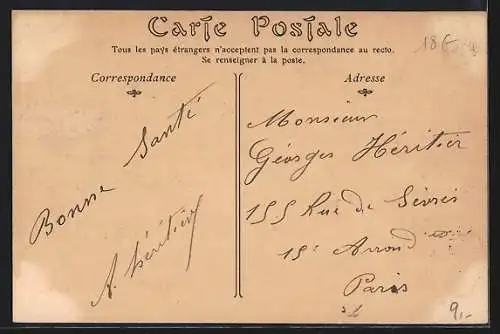 Carte Postale
Tous les pays étrangers n'acceptent pas la correspondance au recto.
Se renseigner à la poste.
Correspondance
Adresse
18€
Bonne Santé
A. Héritier
Monsieur
Géorges Héritier
155 Rue de Sèvres
15e Arrond
Paris
9,-